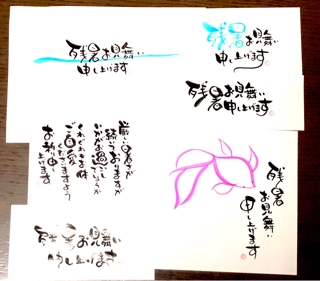 残暑お見舞い
申し上げます
残暑お見舞い
申し上げます
残暑お見舞い
申し上げます
厳しい暑さが
続いておりますが
いかがお過ごしでしょうか
くれぐれもお体
ご自愛
くださいますよう
お祈り申し
上げます
残暑
お見舞い
申し上げます
残暑お見舞い
申し上げます